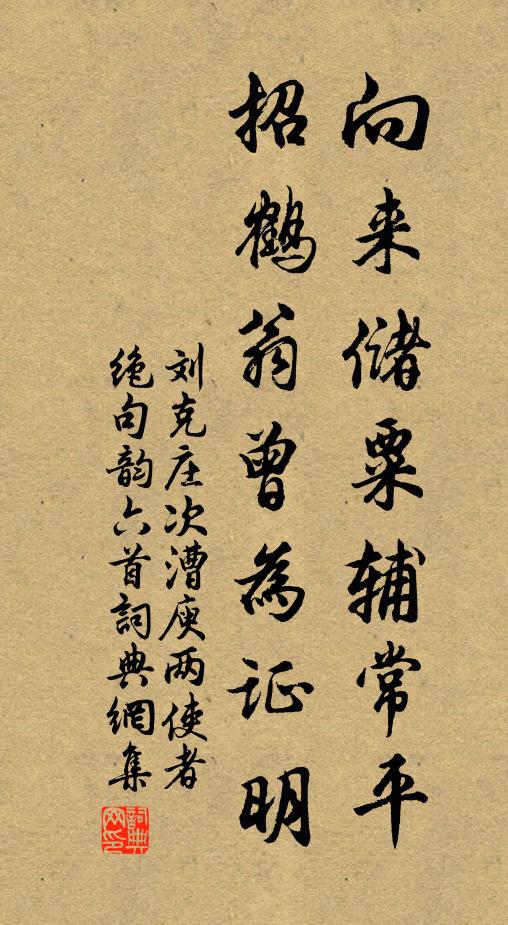 向来储粟辅常平
招鹤翁曾為证明
刘克庄次漕庾两使者
绝句韵六首詞典網集
詞典网印